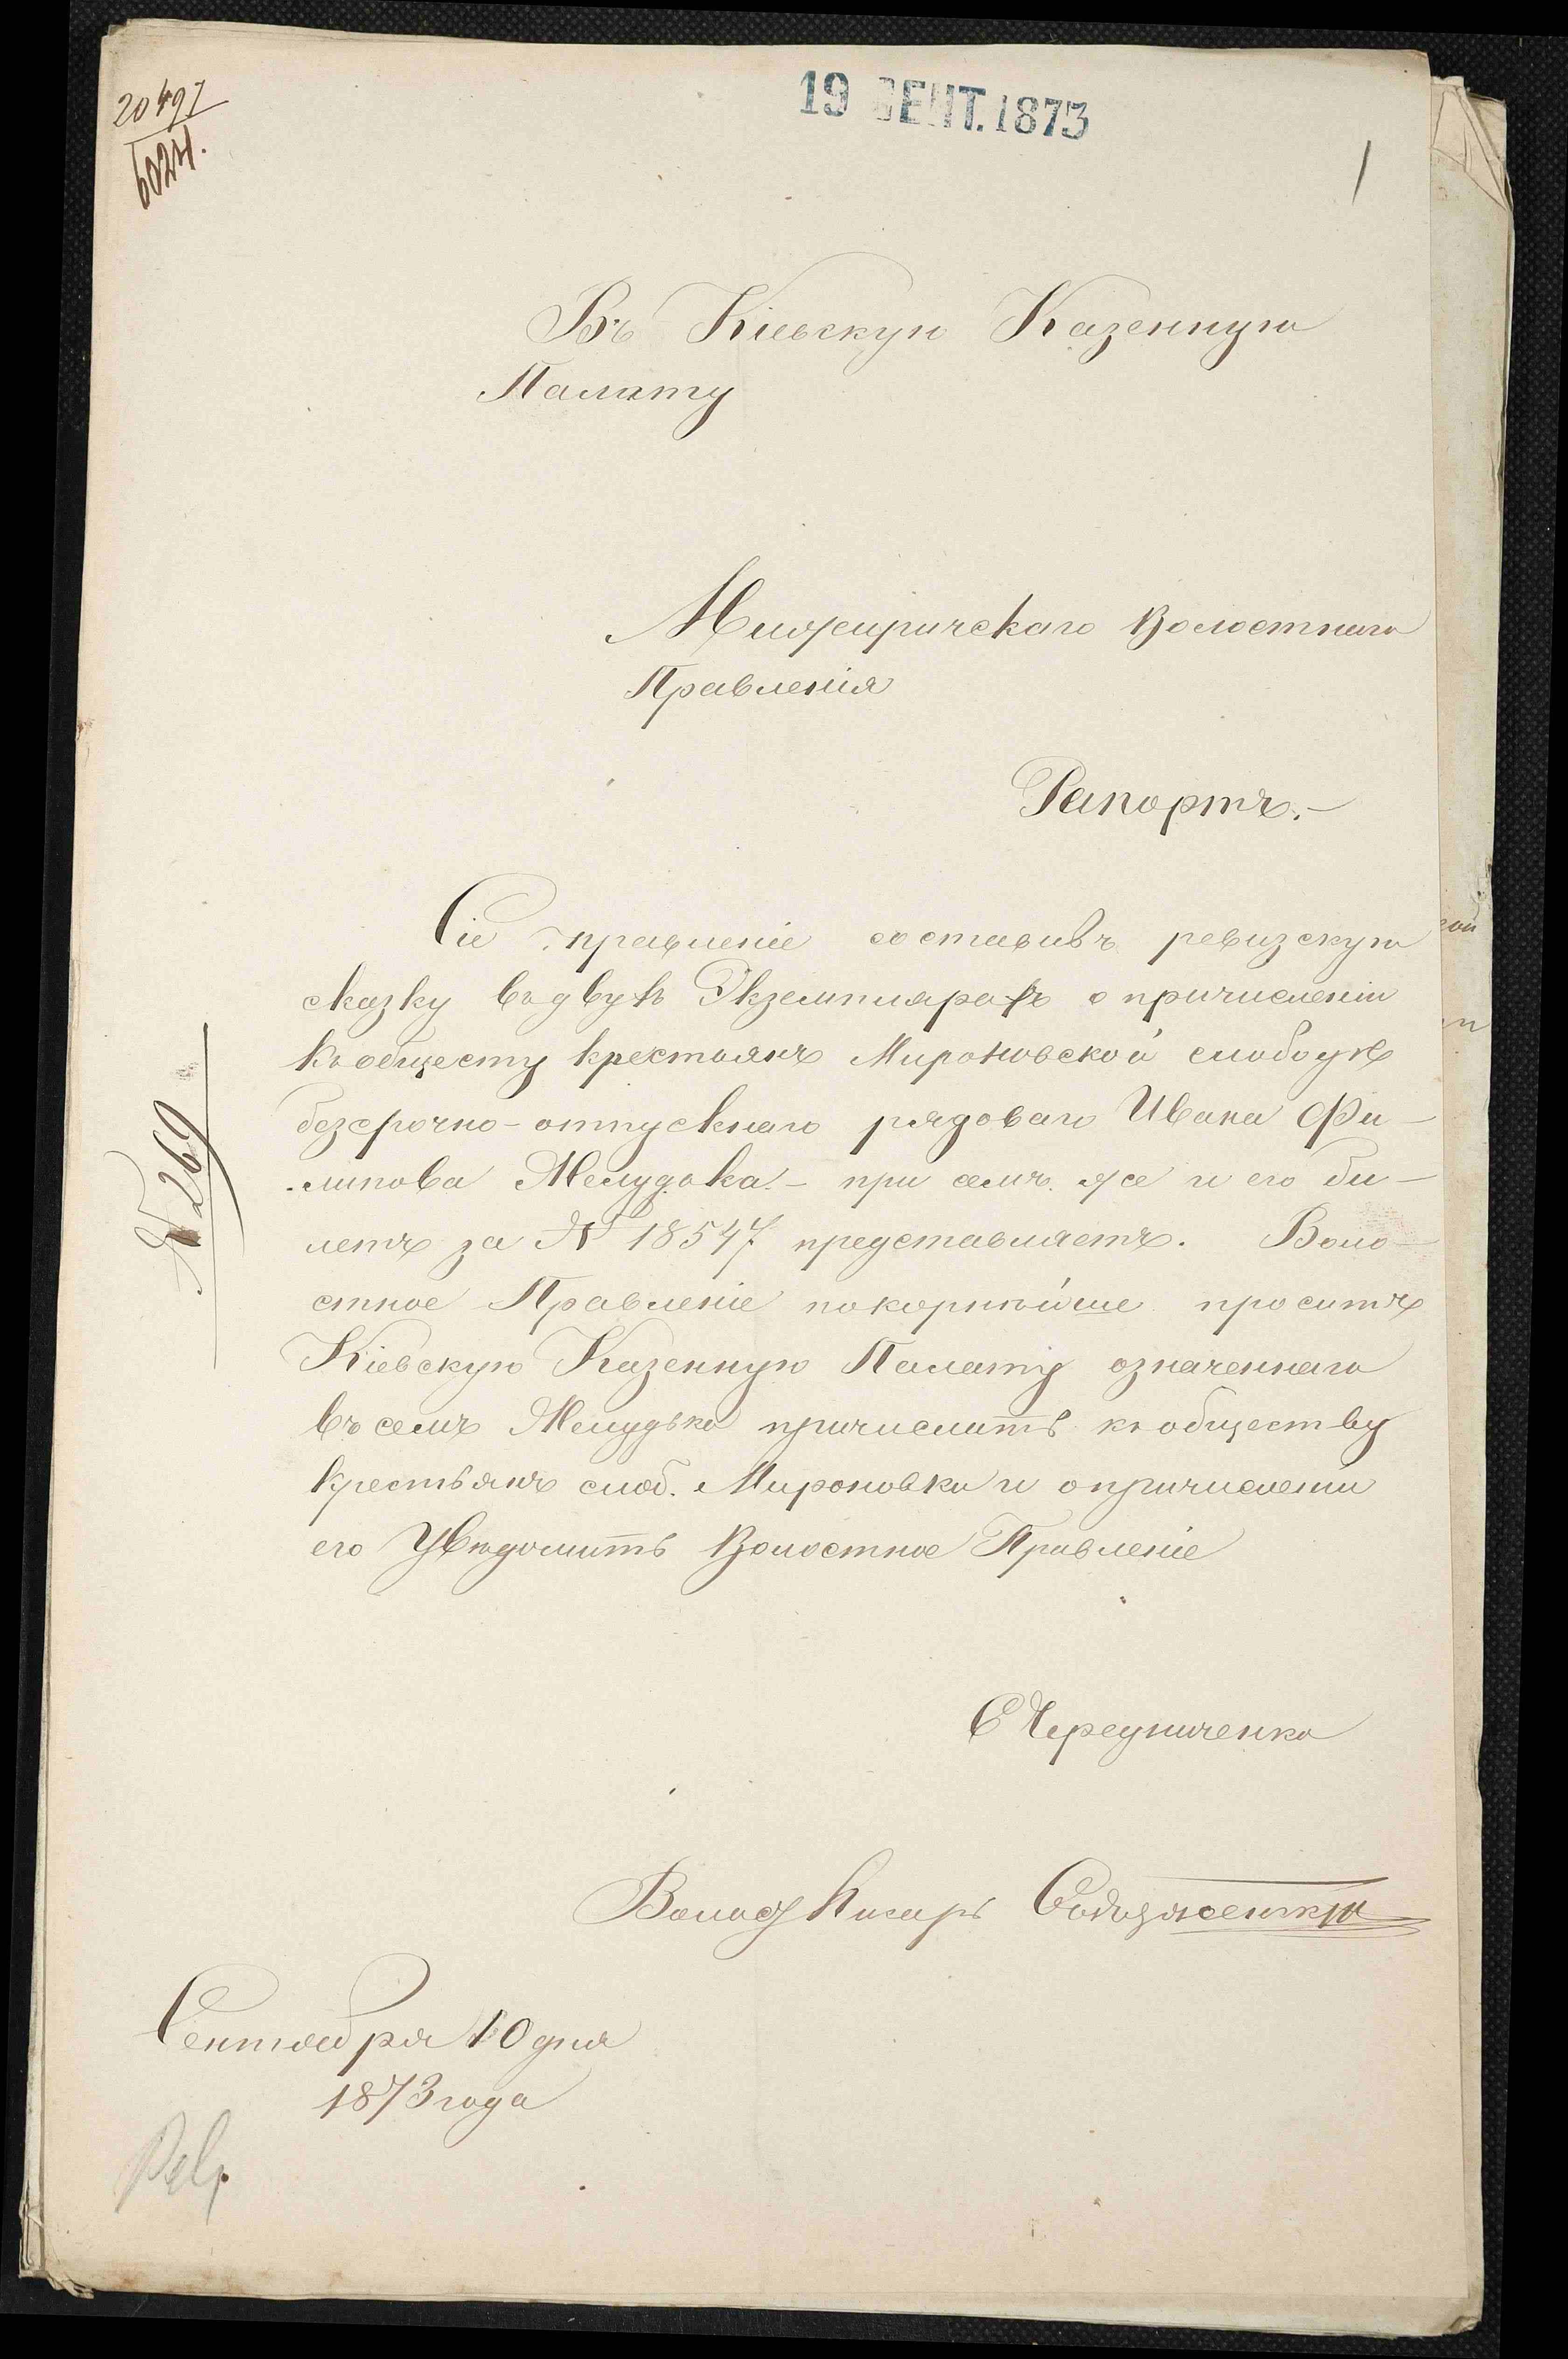 20497
6024.
19 СЕНТ. 1873
1
Въ Кіевскую Казенную
Палату
Межиричскаго Волостнаго
Правленія
Рапортъ.-
Сіе правленіе составивъ ревизскую
сказку въ двухъ Экземплярахъ о причисленіи
къ общесту крестьянъ Мироновской слободѣ
безсрочно-отпускнаго рядоваго Ивана Фи-
липова Желудока - при семъ же и его би-
летъ за № 18547 представляетъ. Воло-
стное Правленіе покорнѣйше проситъ
Кіевскую Казенную Палату означеннаго
въ семъ Желудька причислить къ обществу
крестьянъ слоб. Мироновки и о причислении
его Увѣдомить Волостное Правленіе
№ 269
С Чередниченко
Волост Писарь
Сентября 10 дня
1873 года